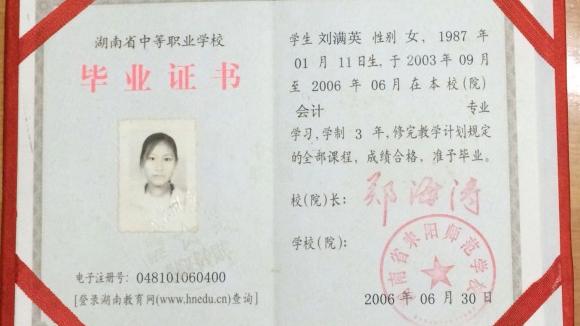 湖南省中等职业学校
毕业证书
电子注册号：048101060400
[登录湖南教育网(www.hnedu.cn)查询]
学生 刘满英 性别 女，1987 年
01 月 11日生，于 2003 年 09月
至 2006 年 06 月 在 本 校(院)
会计 专业
学习，学制 3 年，修完教学计划规定
的全部课程，成绩合格，准予毕业。
校(院)长： 郑海涛
学校(院)：
湖南省耒阳师范学校
2006 年 06 月 30 日